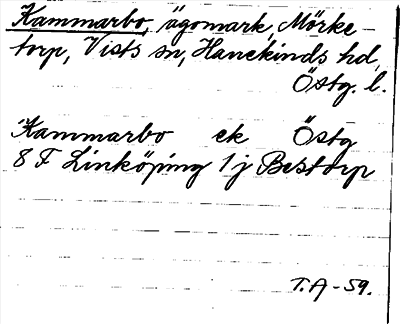 Kammarbo, ägomark, Mörke-
torp, Vists sn, Hanekinds hd,
Östg. l.
Kammarbo ek Östg
8 F Linköping 1 j Bestorp
T.A-59.